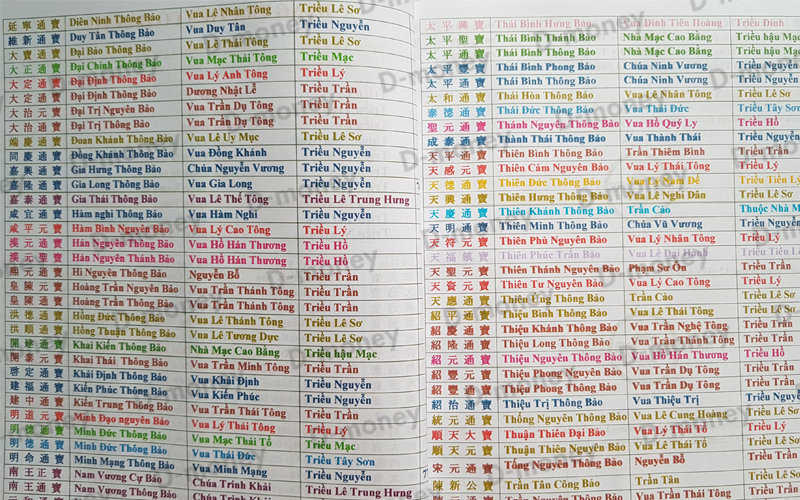 延寧通寶 Diên Ninh Thông Bảo Vua Lê Nhân Tông Triều Lê Sơ
維新通寶 Duy Tân Thông Bảo Vua Duy Tân Triều Nguyễn
大寶通寶 Đại Bảo Thông Bảo Vua Lê Thái Tông Triều Lê Sơ
大正通寶 Đại Chính Thông Bảo Vua Mạc Thái Tông Triều Mạc
大定通寶 Đại Định Thông Bảo Vua Lý Anh Tông Triều Lý
大定通寶 Đại Định Thông Bảo Dương Nhật Lễ Triều Trần
大治元寶 Đại Trị Nguyên Bảo Vua Trần Dụ Tông Triều Trần
大治通寶 Đại Trị Thông Bảo Vua Trần Dụ Tông Triều Trần
端慶通寶 Đoan Khánh Thông Bảo Vua Lê Uy Mục Triều Lê Sơ
同慶通寶 Đồng Khánh Thông Bảo Vua Đồng Khánh Triều Nguyễn
嘉興通寶 Gia Hưng Thông Bảo Chúa Nguyễn Vương Triều Nguyễn
嘉隆通寶 Gia Long Thông Bảo Vua Gia Long Triều Nguyễn
嘉泰通寶 Gia Thái Thông Bảo Vua Lê Thế Tông Triều Lê Trung Hưng
咸宜通寶 Hàm nghi Thông Bảo Vua Hàm Nghi Triều Nguyễn
咸平元寶 Hàm Bình Nguyên Bảo Vua Lý Cao Tông Triều Lý
漢元通寶 Hán Nguyên Thông Bảo Vua Hồ Hán Thương Triều Hồ
漢元聖寶 Hán Nguyên Thánh Bảo Vua Hồ Hán Thương Triều Hồ
熙元通寶 Hi Nguyên Thông Bảo Nguyễn Bổ Triều Trần
皇陳元寶 Hoàng Trần Nguyên Bảo Vua Trần Thánh Tông Triều Trần
皇陳通寶 Hoàng Trần Thông Bảo Vua Trần Thánh Tông Triều Trần
洪德通寶 Hồng Đức Thông Bảo Vua Lê Thánh Tông Triều Lê Sơ
洪順通寶 Hồng Thuận Thông Bảo Vua Lê Tương Dực Triều Lê Sơ
開建通寶 Khai Kiến Thông Bảo Nhà Mạc Cao Bằng Triều hậu Mạc
開泰元寶 Khai Thái Thông Bảo Vua Trần Minh Tông Triều Trần
啓定通寶 Khải Định Thông Bảo Vua Khải Định Triều Nguyễn
建福通寶 Kiến Phúc Thông Bảo Vua Kiến Phúc Triều Nguyễn
建中通寶 Kiến Trung Thông Bảo Vua Trần Thái Tông Triều Trần
明道元寶 Minh Đạo nguyên Bảo Vua Lý Thái Tông Triều Lý
明德通寶 Minh Đức Thông Bảo Vua Mạc Thái Tổ Triều Mạc
明德通寶 Minh Đức Thông Bảo Vua Thái Đức Triều Tây Sơn
明命通寶 Minh Mạng Thông Bảo Vua Minh Mạng Triều Nguyễn
南王正寶 Nam Vương Cự Bảo Chúa Trịnh Khải
南王通寶 Nam Vương Thông Bảo Chúa Trịnh Triều Lê Trung Hưng
太平興寶 Thái Bình Hưng Bảo Vua Đinh Tiên Hoàng Triều Đinh
太平聖寶 Thái Bình Thánh Bảo Nhà Mạc Cao Bằng Triều hậu Mạc
太平豐寶 Thái Bình Phong Bảo Chúa Ninh Vương Triều Nguyễn
太平通寶 Thái Bình Thông Bảo Chúa Ninh Vương Triều Nguyễn
太和通寶 Thái Hòa Thông Bảo Vua Lê Nhân Tông Triều Lê Sơ
泰德通寶 Thái Đức Thông Bảo Vua Thái Đức Triều Tây Sơn
聖元通寶 Thánh Nguyên Thông Bảo Vua Hồ Quý Ly Triều Hồ
成泰通寶 Thành Thái Thông Bảo Vua Thành Thái Triều Nguyễn
天平通寶 Thiên Bình Thông Bảo Trần Thiêm Bình Triều Trần
天感元寶 Thiên Cảm Nguyên Bảo Vua Lý Thái Tông Triều Lý
天德通寶 Thiên Đức Thông Bảo Vua Lý Nam Đế Triều Tiền Lý
天興通寶 Thiên Hưng Thông Bảo Vua Lê Nghi Dân Triều Lê Sơ
天慶通寶 Thiên Khánh Thông Bảo Trần Cảo Thuộc Nhà M
天明通寶 Thiên Minh Thông Bảo Chúa Vũ Vương Triều Nguyễn
天符元寶 Thiên Phù Nguyên Bảo Vua Lý Nhân Tông Triều Lý
天福鎮寶 Thiên Phúc Trấn Bảo Vua Lê Đại Hành Triều Tiền L
天聖元寶 Thiên Thánh Nguyên Bảo Phạm Sư Ôn Triều Trần
天資元寶 Thiên Tư Nguyên Bảo Vua Lý Cao Tông Triều Lý
天應通寶 Thiên Ứng Thông Bảo Trần Cảo Triều Lê Sơ
紹平通寶 Thiệu Bình Thông Bảo Vua Lê Thái Tông Triều Lê Sơ
紹慶通寶 Thiệu Khánh Thông Bảo Vua Trần Nghệ Tông Triều Trần
紹隆通寶 Thiệu Long Thông Bảo Vua Trần Thánh Tông Triều Trần
紹元通寶 Thiệu Nguyên Thông Bảo Vua Hồ Hán Thương Triều Hồ
紹豐元寶 Thiệu Phong Nguyên Bảo Vua Trần Dụ Tông Triều Trần
紹豐通寶 Thiệu Phong Thông Bảo Vua Trần Dụ Tông Triều Trần
紹治通寶 Thiệu Trị Thông Bảo Vua Thiệu Trị Triều Nguyễn
統元通寶 Thống Nguyên Thông Bảo Vua Lê Cung Hoàng Triều Lê Sơ
順天大寶 Thuận Thiên Đại Bảo Vua Lý Thái Tổ Triều Lý
順天元寶 Thuận Thiên Bảo Vua Lê Thái Tổ Triều Lê Sơ
宋元通寶 Tống Nguyên Thông Bảo Nguyễn Bổ Triều Trần
陳新公寶 Trần Tân Công Bảo Trần Tân Triều Trần
D-money